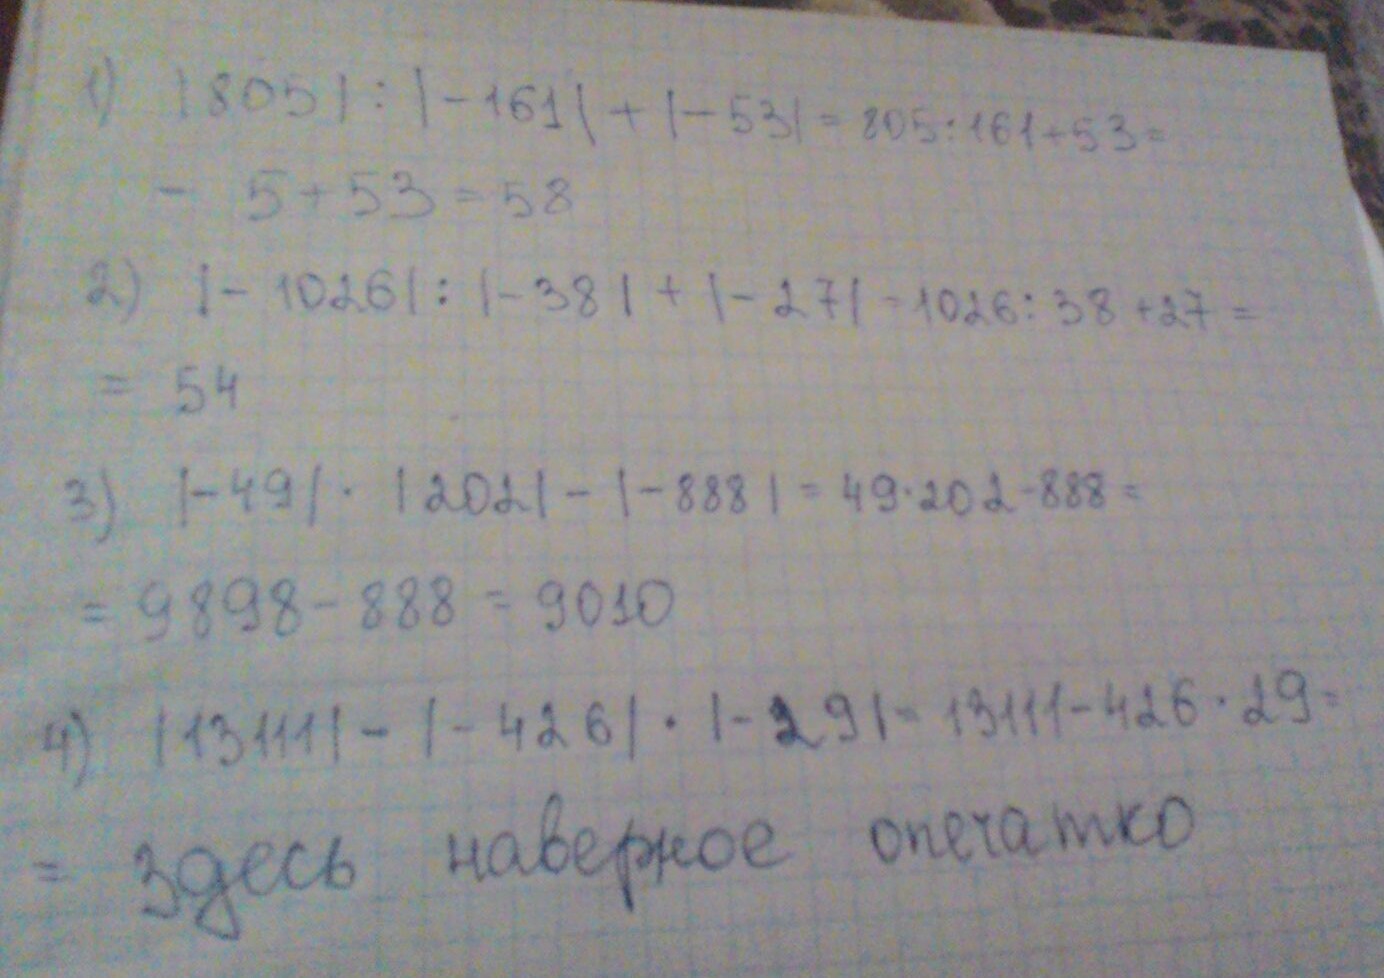 1) |805| : |-161| + |-53| = 805:161+53=
- 5+53=58
2) |-1026| : |-38| + |-27| - 1026:38+27=
= 54
3) |-49| · |202| - |-888| = 49·202-888=
= 9898-888=9010
4) |13111| - |-426| · |-29| = 13111-426·29=
= здесь наверное опечатко